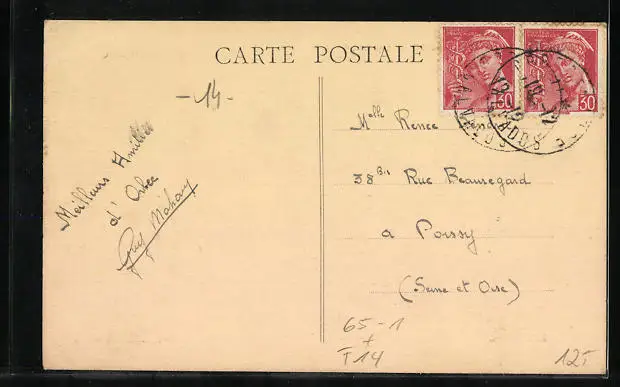 CARTE POSTALE
-14-
Melle Renee
38 Bis Rue Beauregard
a Poissy
(Seine et Oise)
Meilleurs Amitiés
d' Orbec
Guy
30
30
CALVADOS
65-1
+
T14
12T